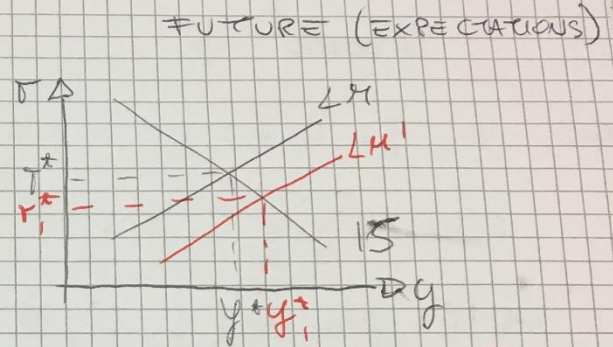 FUTURE (EXPECTATIONS)
r
LM
LM'
r*
r₁*
IS
y
y* y₁*